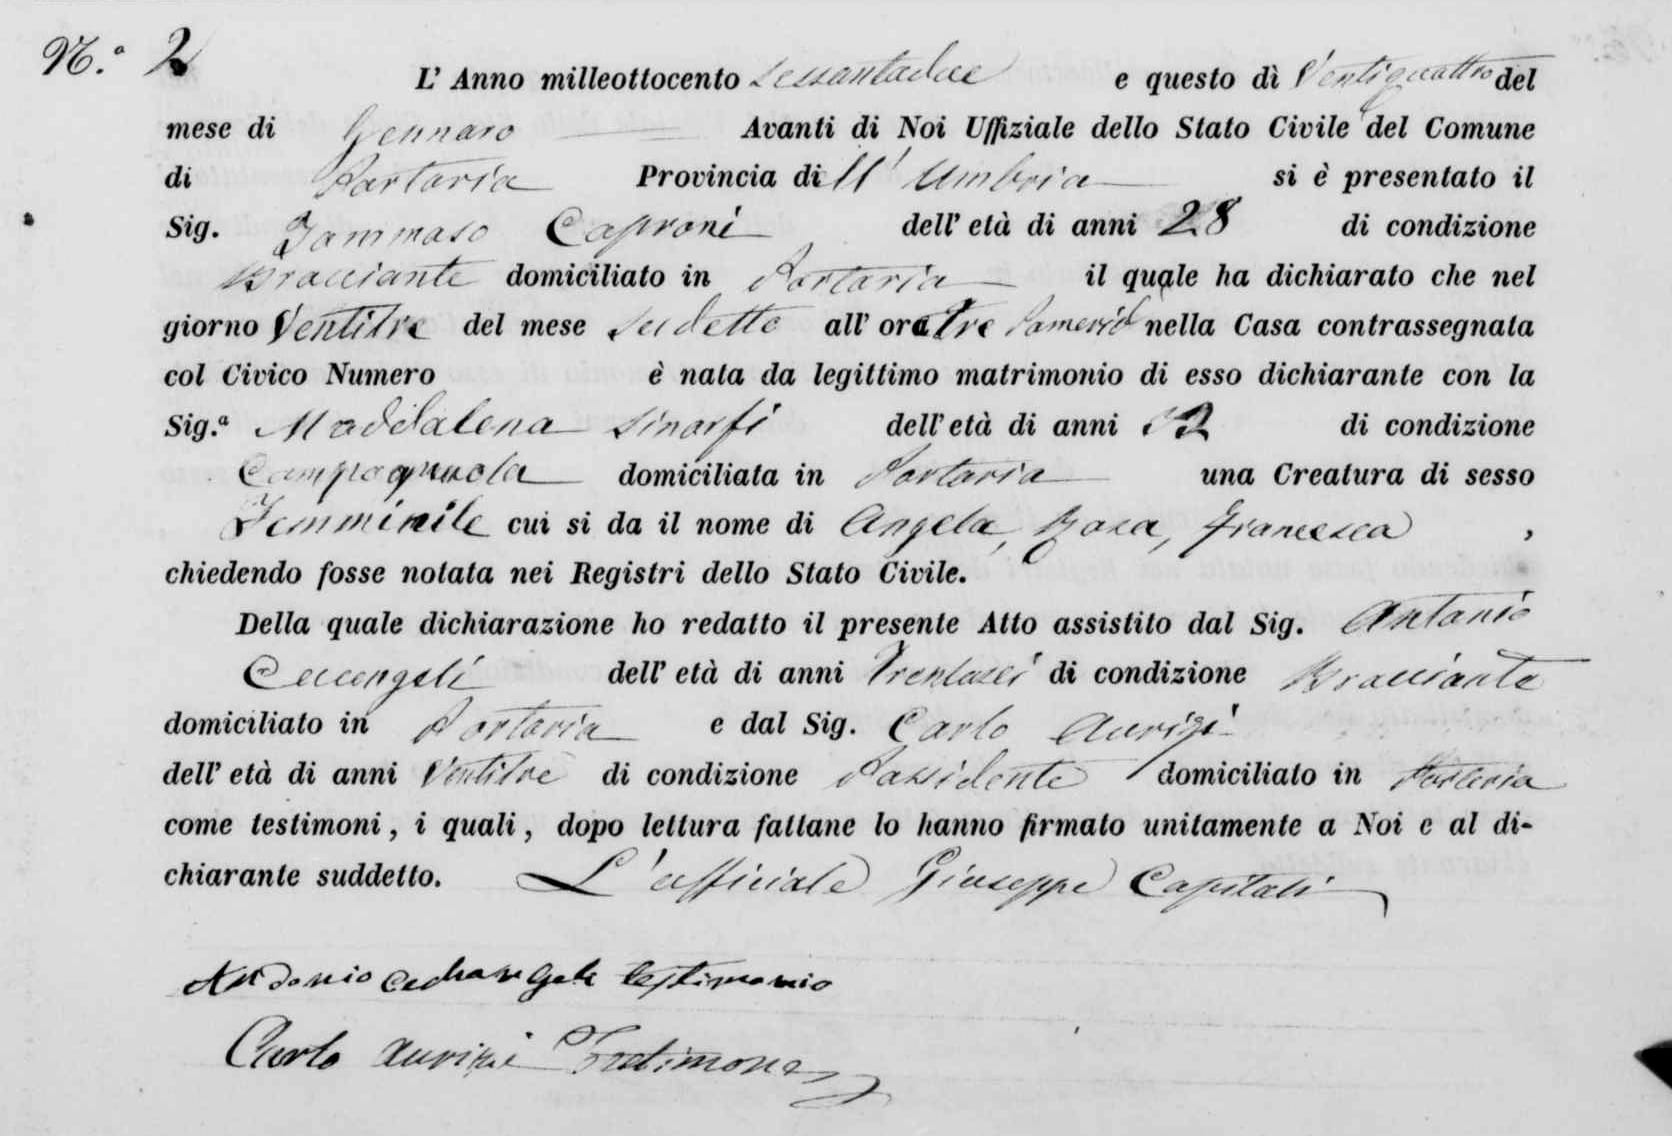 N.º 2
L' Anno milleottocento sessantadue e questo dì Ventiquattro del
mese di Gennaro Avanti di Noi Uffiziale dello Stato Civile del Comune
di Portaria Provincia dell' Umbria si è presentato il
Sig. Tommaso Caproni dell' età di anni 28 di condizione
Bracciante domiciliato in Portaria il quale ha dichiarato che nel
giorno Ventitre del mese sudetto all' ora Tre Pomerid nella Casa contrassegnata
col Civico Numero è nata da legittimo matrimonio di esso dichiarante con la
Sig.ª Maddalena Sinorfi dell' età di anni 32 di condizione
Campagnuola domiciliata in Portaria una Creatura di sesso
Femminile cui si da il nome di Angela, Rosa, Francesca ,
chiedendo fosse notata nei Registri dello Stato Civile.
Della quale dichiarazione ho redatto il presente Atto assistito dal Sig. Antonio
Ceccangeli dell' età di anni Trentasei di condizione Bracciante
domiciliato in Portaria e dal Sig. Carlo Aurizi
dell' età di anni Ventitre di condizione Possidente domiciliato in Portaria
come testimoni, i quali, dopo lettura fattane lo hanno firmato unitamente a Noi e al di-
chiarante suddetto. L'ufficiale Giuseppe Capitali
Antonio testimonio
Carlo Aurizi Testimone